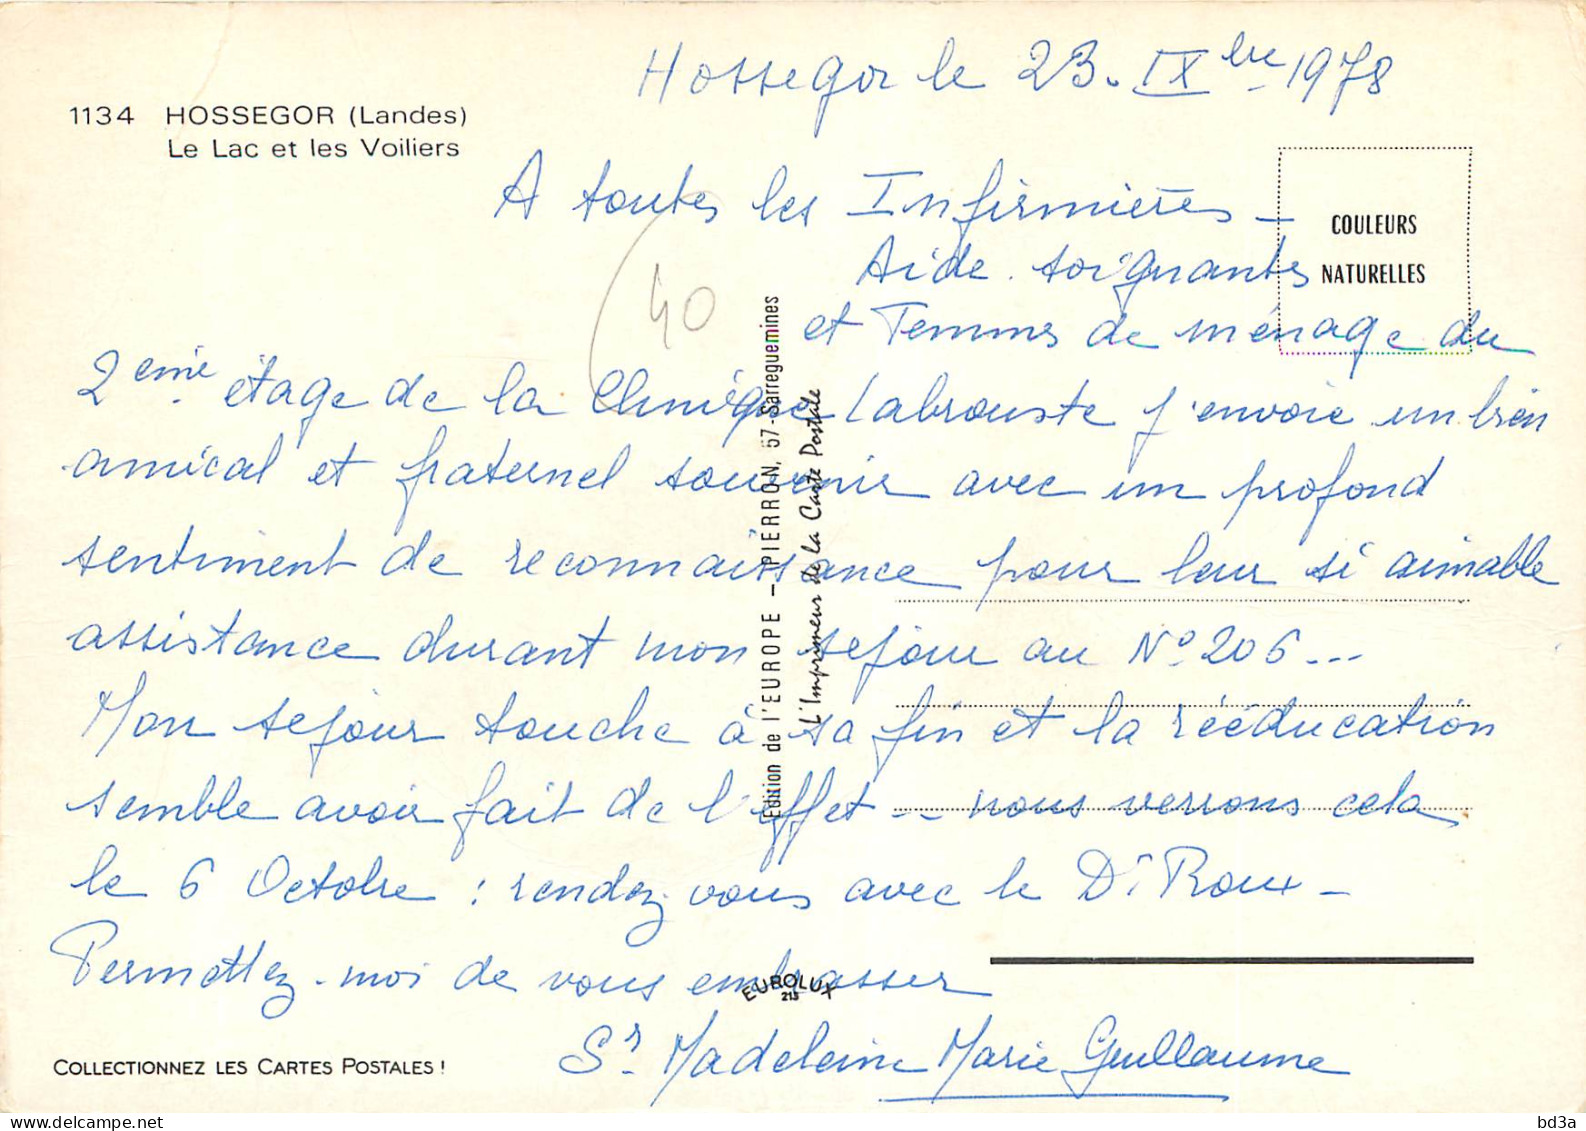 Hossegor le 23. IXbre 1978
1134 HOSSEGOR (Landes)
Le Lac et les Voiliers
COULEURS
NATURELLES
A toutes les Infirmières -
Aide. soignantes
et Femmes de ménage du
40
2ème étage de la Clinique Labrouste j'envoie un bien
amical et fraternel souvenir avec un profond
sentiment de reconnaissance pour leur si aimable
assistance durant mon séjour au N° 206...
Mon séjour touche à sa fin et la rééducation
semble avoir fait de l'effet -- nous verrons cela
le 6 Octobre : rendez-vous avec le Dr Roux -
Permettez-moi de vous embrasser
Sr Madeleine Marie Guillaume
Edition de l'EUROPE - PIERRON, 57-Sarreguemines
L'Imprimeur de la Carte Postale
EUROLUX
215
COLLECTIONNEZ LES CARTES POSTALES !
delcampe.net
bd3a